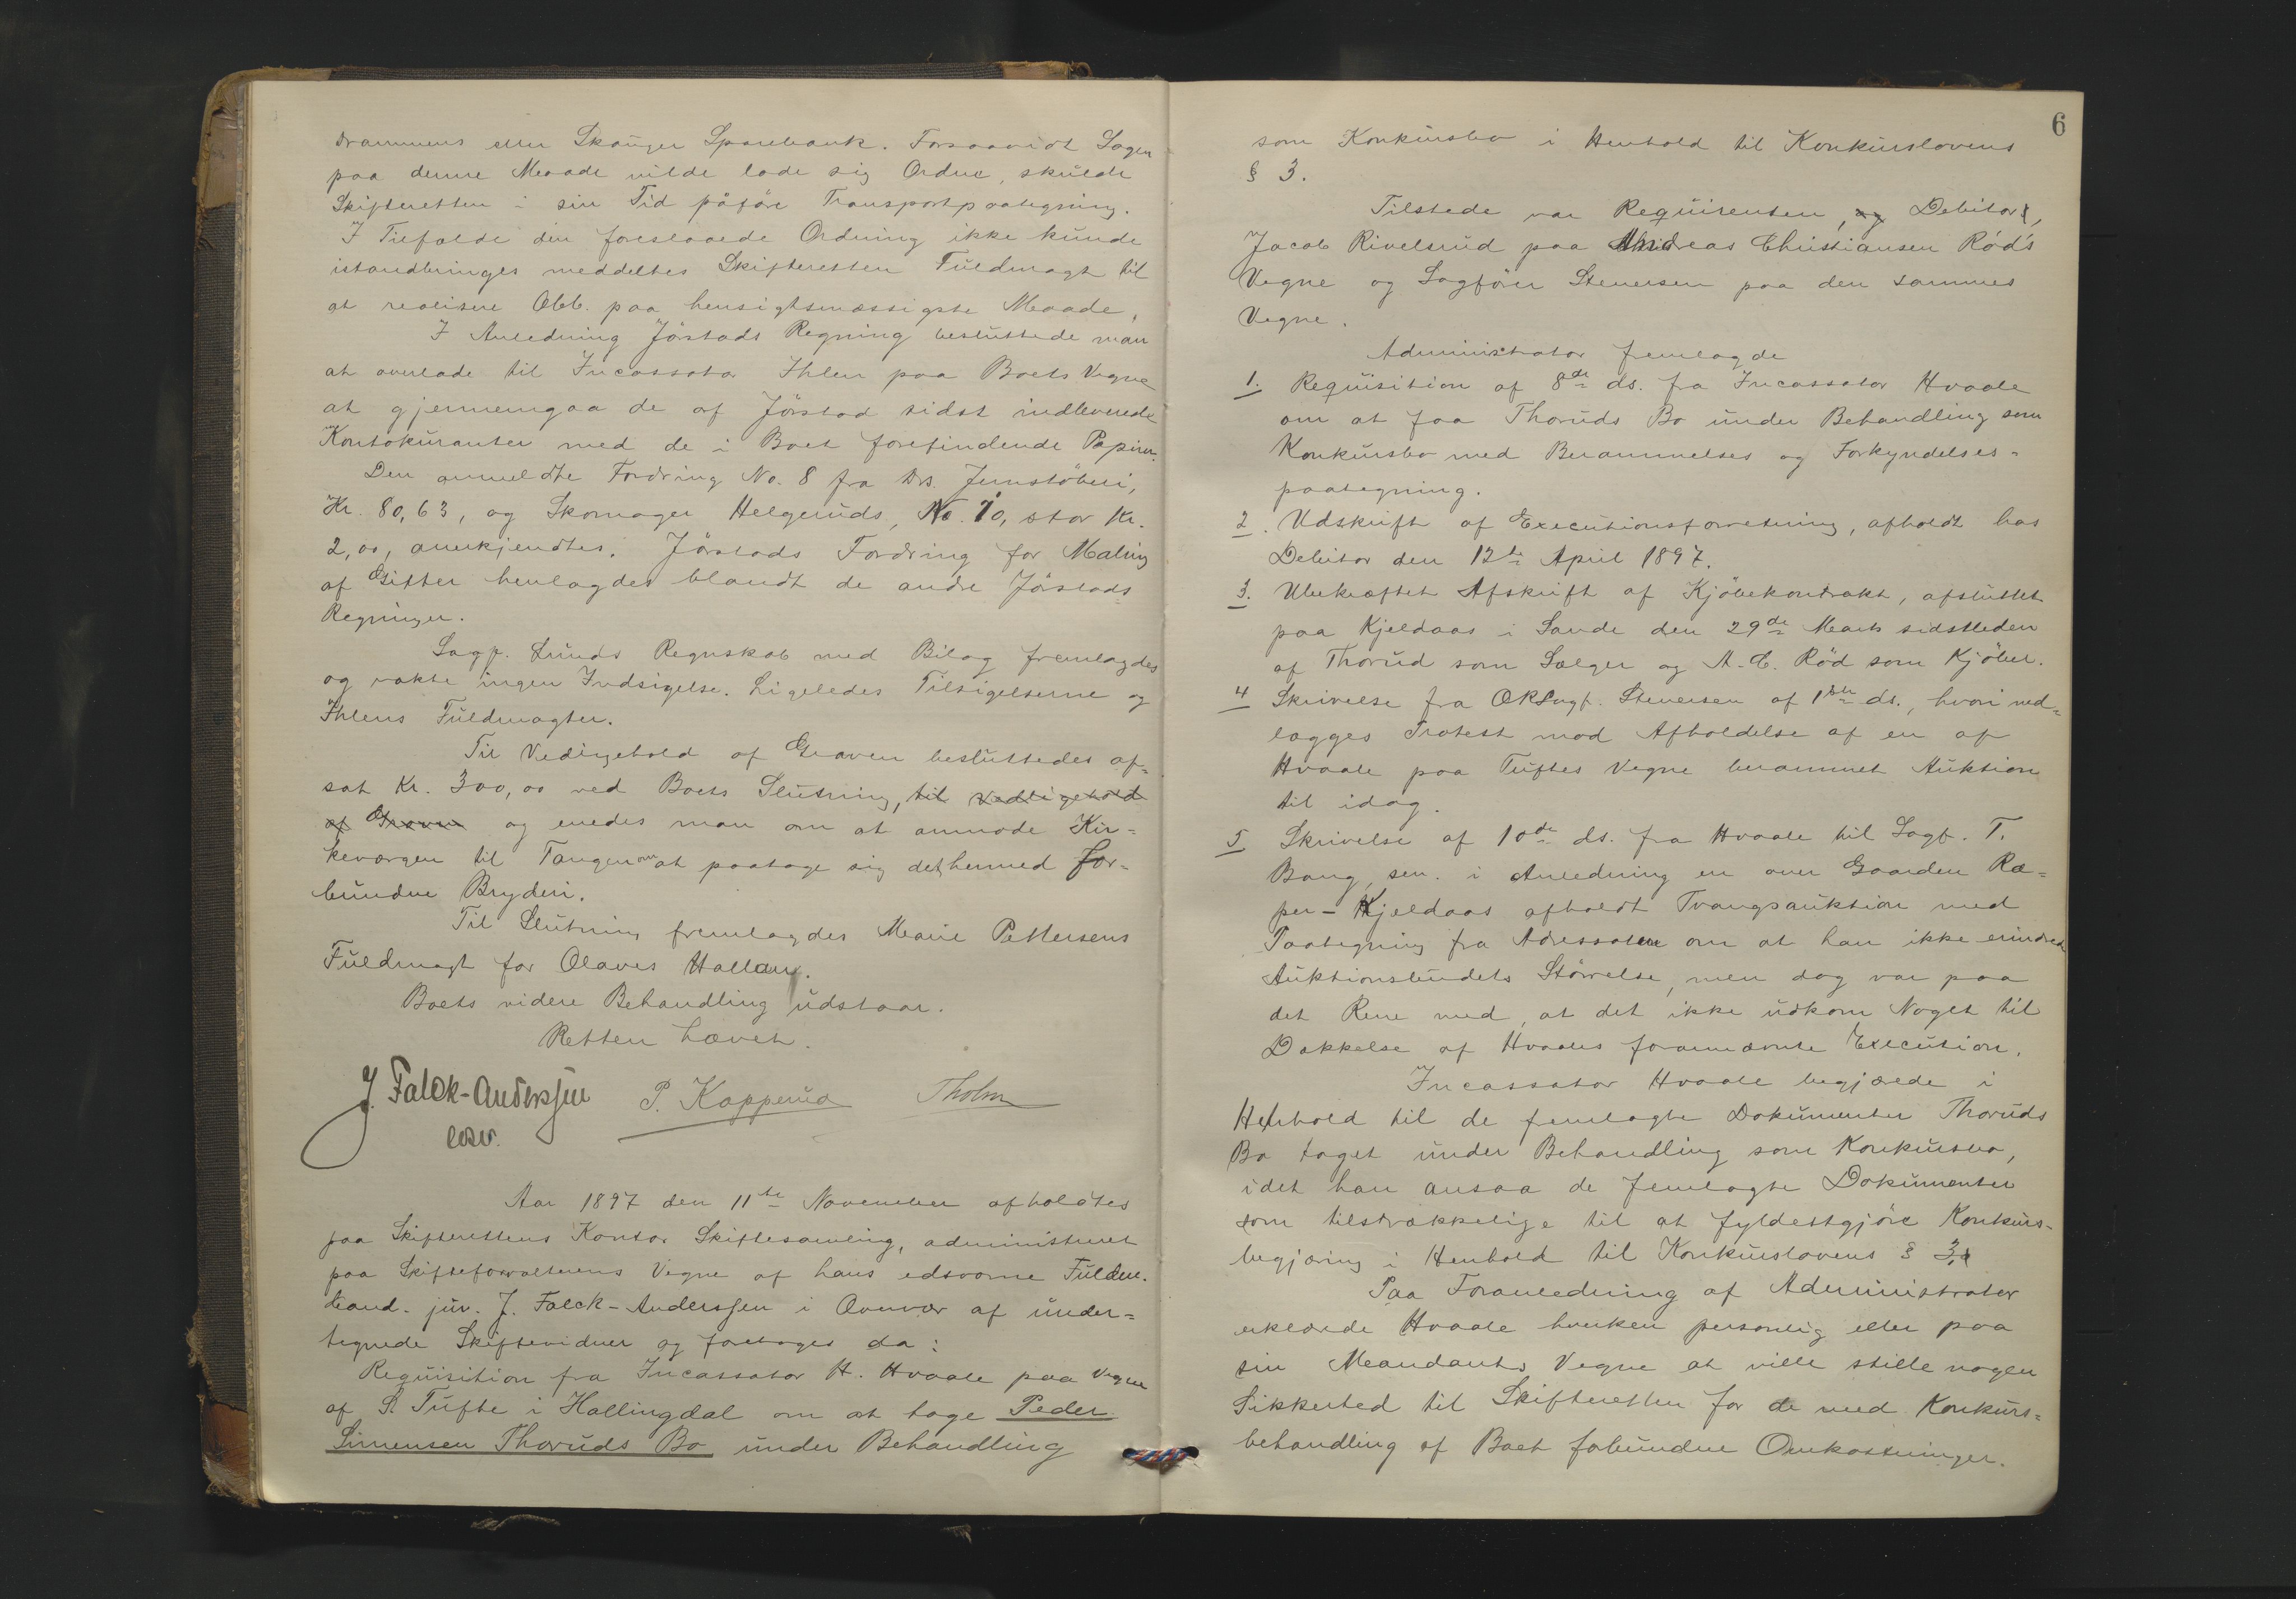 Drammens eller Skouger Sparebank. Forsaavidt Sagen
paa denne Maade vilde lade sig Ordne, skulde
Skifteretten i sin Tid påföre Transportpaategning.
I Tilfælde den foreslaaede Ordning ikke kunde
istandbringes meddeltes Skifteretten Fuldmagt til
at realisere Obl. paa hensigtsmæssigste Maade.
I Anledning Jörstads Regning besluttede man
at overlade til Incassator Ihlen paa Boets Vegne
at gjennemgaa de af Jörstad sidst indleverede
Kontokuranter med de i Boet forefindende Papirer.
Den anmeldte Fordring No. 8 fra Drs. Jernstöberi,
Kr. 80,63, og Skomager Helgeruds, No. 10, stor Kr.
2,00, anerkjendtes. Jörstads Fordring for Maling
af Gitter henlagdes blandt de andre Jörstads
Regninger.
Sagf. Lunds Regnskab med Bilag fremlagdes
og vakte ingen Indsigelse. Ligeledes Tilsigelserne og
Ihlens Fuldmagter.
Til Vedligehold af Graven besluttedes af=
sat Kr. 300,00 ved Boets Slutning, til Vedligehold
af Graven og enedes man om at anmode Kir=
keværgen til Tangen om at paatage sig det hermed for=
bundne Bryderi.
Til Slutning fremlagdes Marie Pettersens
Fuldmagt for Olaves Hallan.
Boets videre Behandling udstaar.
Retten hævet.
J. Falck-Anderssen P. Kopperud Tholm
esv.
Aar 1897 den 11te November afholdtes
paa Skifterettens Kontor Skiftesamling, administreret
paa Skifteforvalterens Vegne af hans edsvorne Fuldm.
Cand. jur. J. Falck-Anderssen i Overvær af under=
tegnede Skiftevidner og foretoges da:
Requisition fra Incassator H. Hvaale paa Vegne
af S. Tufte i Hallingdal om at tage Peder
Simensen Thoruds Bo under Behandling
6
som Konkursbo i Henhold til Konkurslovens
§ 3.
Tilstede var Requirenten, og Debitor,
Jacob Rivelsrud paa Andreas Christiansen Röd's
Vegne og Sagförer Stenersen paa den sammes
Vegne.
Administrator fremlagde
1. Requisition af 8de ds. fra Incassator Hvaale
om at faa Thoruds Bo under Behandling som
Konkursbo med Berammelses og Forkyndelses=
paategning.
2. Udskrift af Executionsforretning, afholdt hos
Debitor den 12te April 1897.
3. Ubekræftet Afskrift af Kjöbekontrakt, afsluttet
paa Kjeldaas i Sande den 29de Marts sidstleden
af Thorud som Sælger og A. C. Röd som Kjöber.
4 Skrivelse fra ORSagf. Stenersen af 1ste ds., hvori ned=
lægges Protest mod Afholdelse af en af
Hvaale paa Tuftes Vegne berammet Auktion
til idag.
5 Skrivelse af 10de ds. fra Hvaale til Sagf. T.
Bang, sen. i Anledning en over Gaarden Ræ=
per-Kjeldaas afholdt Tvangsauktion med
Paategning fra Adressaten om at han ikke erindrede
Auktionsbudets Störrelse, men dog var paa
det Rene med, at det ikke udkom Noget til
Dækkelse af Hvaales forannævnte Execution.
Incassator Hvaale begjærede i
Henhold til de fremlagte Dokumenter Thoruds
Bo taget under Behandling som Konkursbo,
idet han ansaa de fremlagte Dokumenter
som tilstrækkelige til at fyldestgjöre Konkurs=
begjæring i Henhold til Konkurslovens § 3.
Paa Foranledning af Administrator
erklærede Hvaale hverken personlig eller paa
sin Mandants Vegne at ville stille nogen
Sikkerhed til Skifteretten for de med Konkurs=
behandling af Boet forbundne Omkostninger.